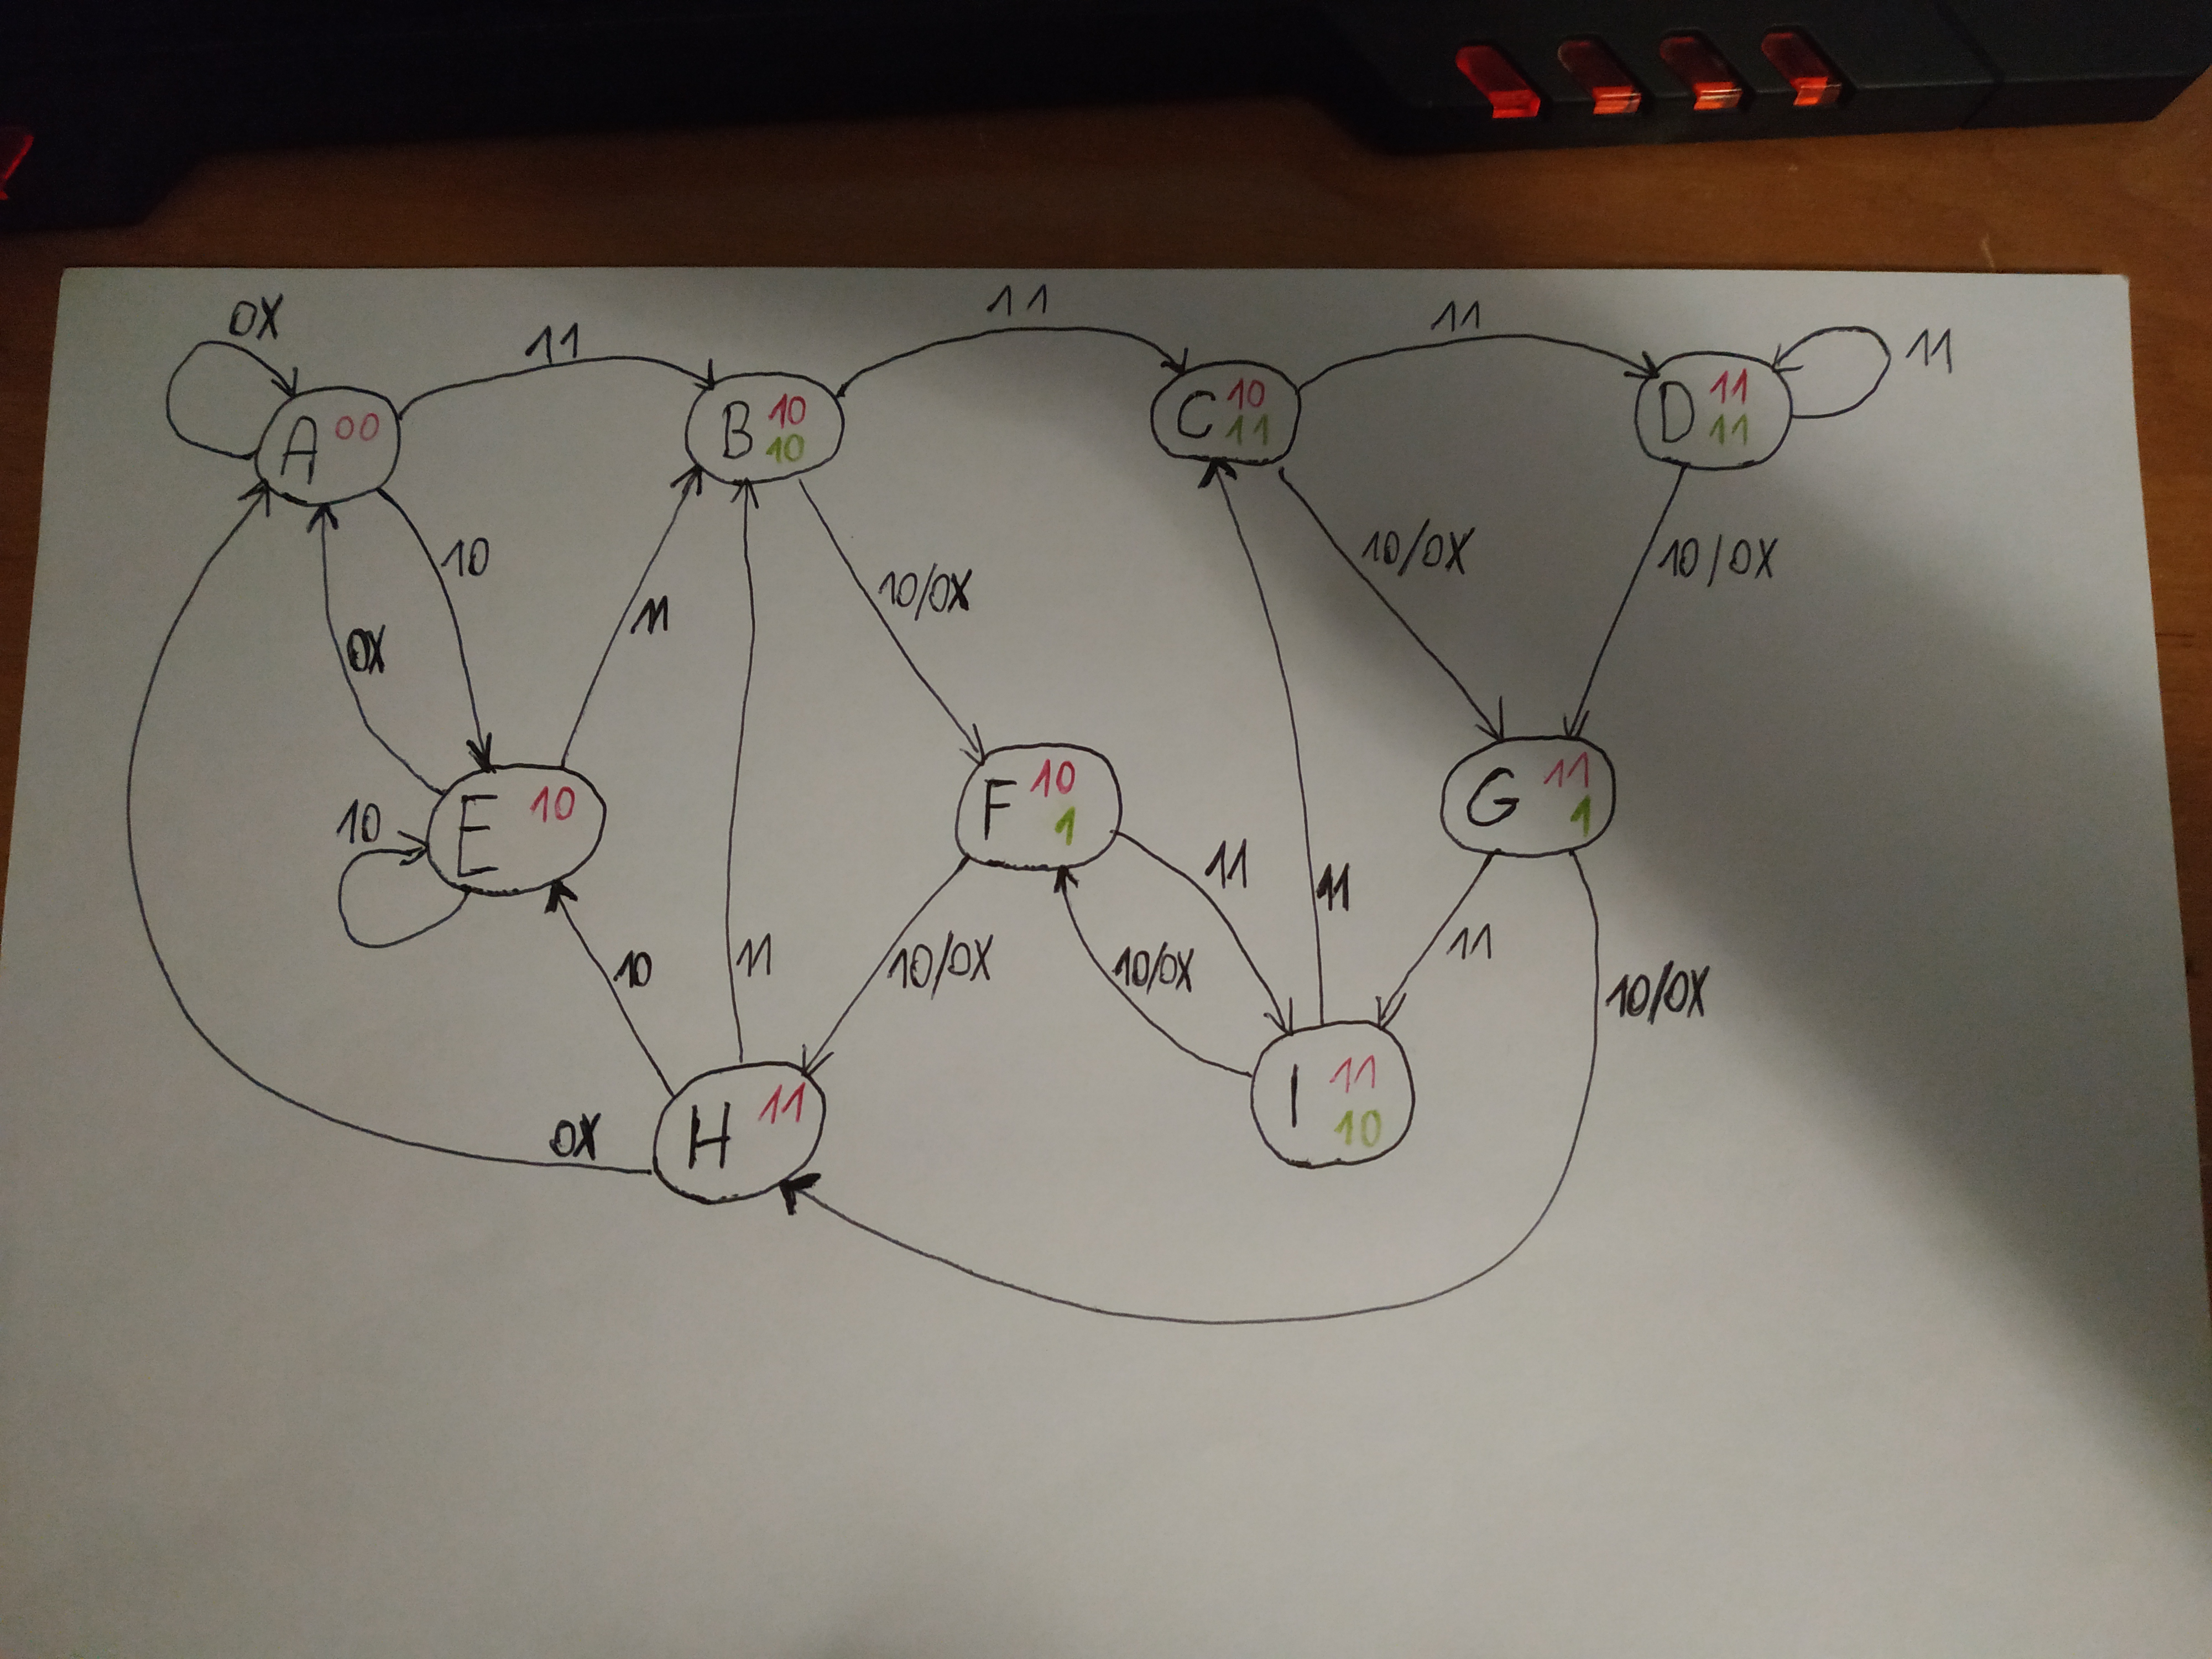 0X
11
11
11
11
A 00
B 10
10
C 10
11
D 11
11
10
0X
11
10/0X
10/0X
10/0X
10
E 10
F 10
1
G 11
1
11
11
10
11
10/0X
10/0X
11
10/0X
0X
H 11
I 11
10